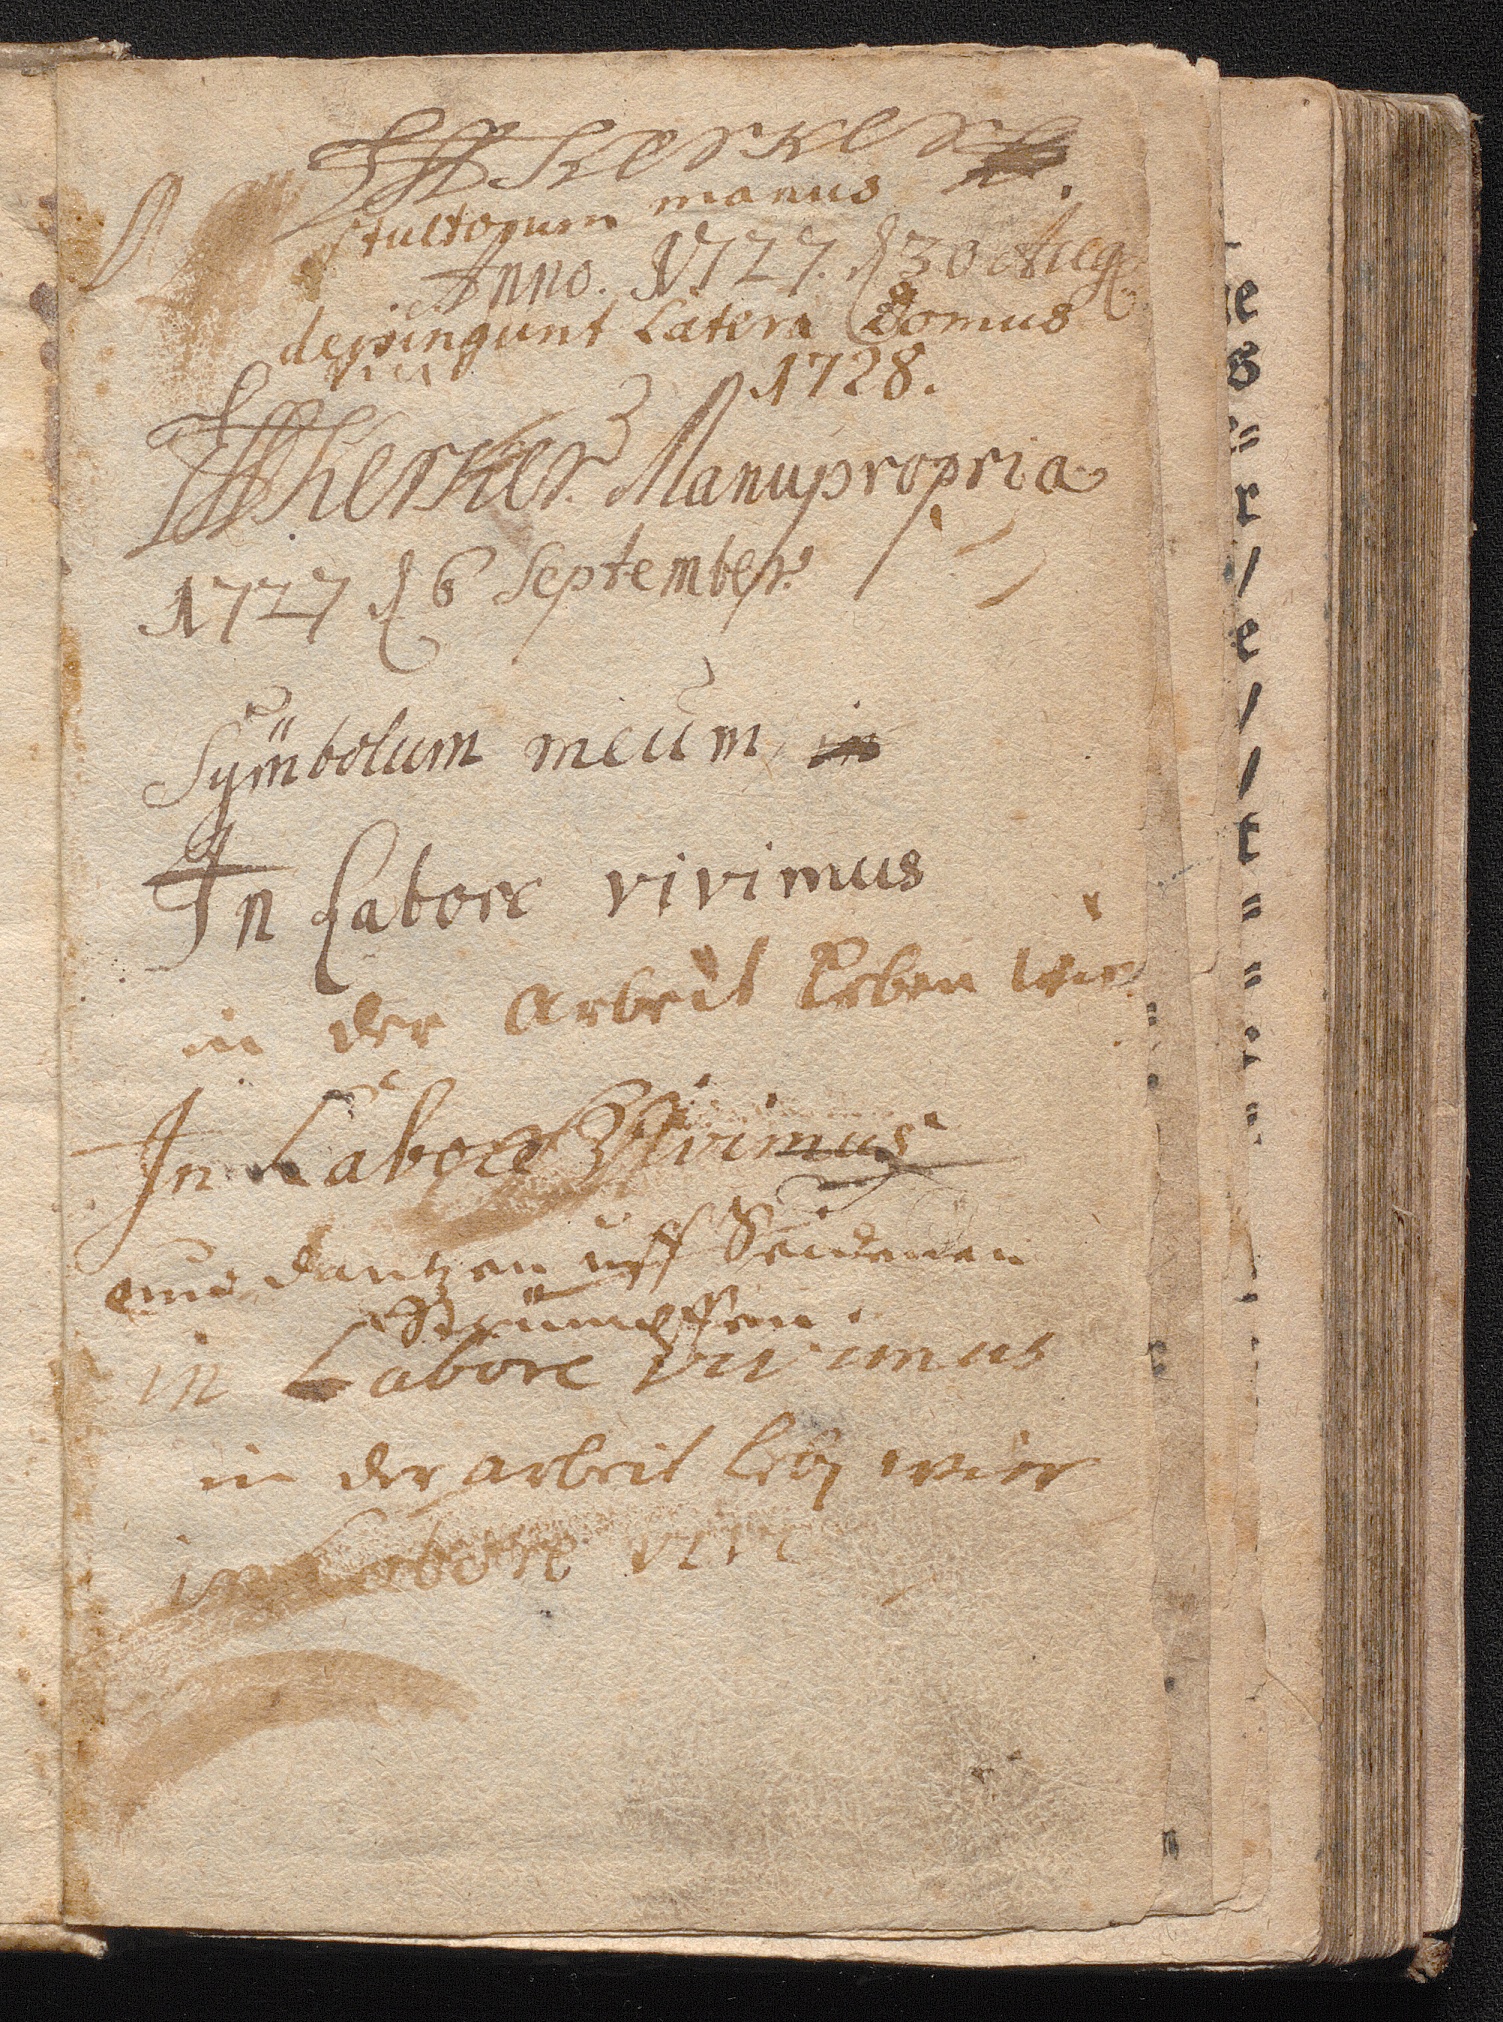 stultorum manus
Anno. 1727. d 30 Aug
depingunt Latera domus
1728.
Kerker Manupropria
1727 d 6 September
Sÿmbolum meum in
In Labore vivimus
in der Arbeit Leben wir
In Labore Vivimus
dantzen uff Seidenen
Strümpffen
in Labore vivimus
in der arbeit leb wier
in Labore vive